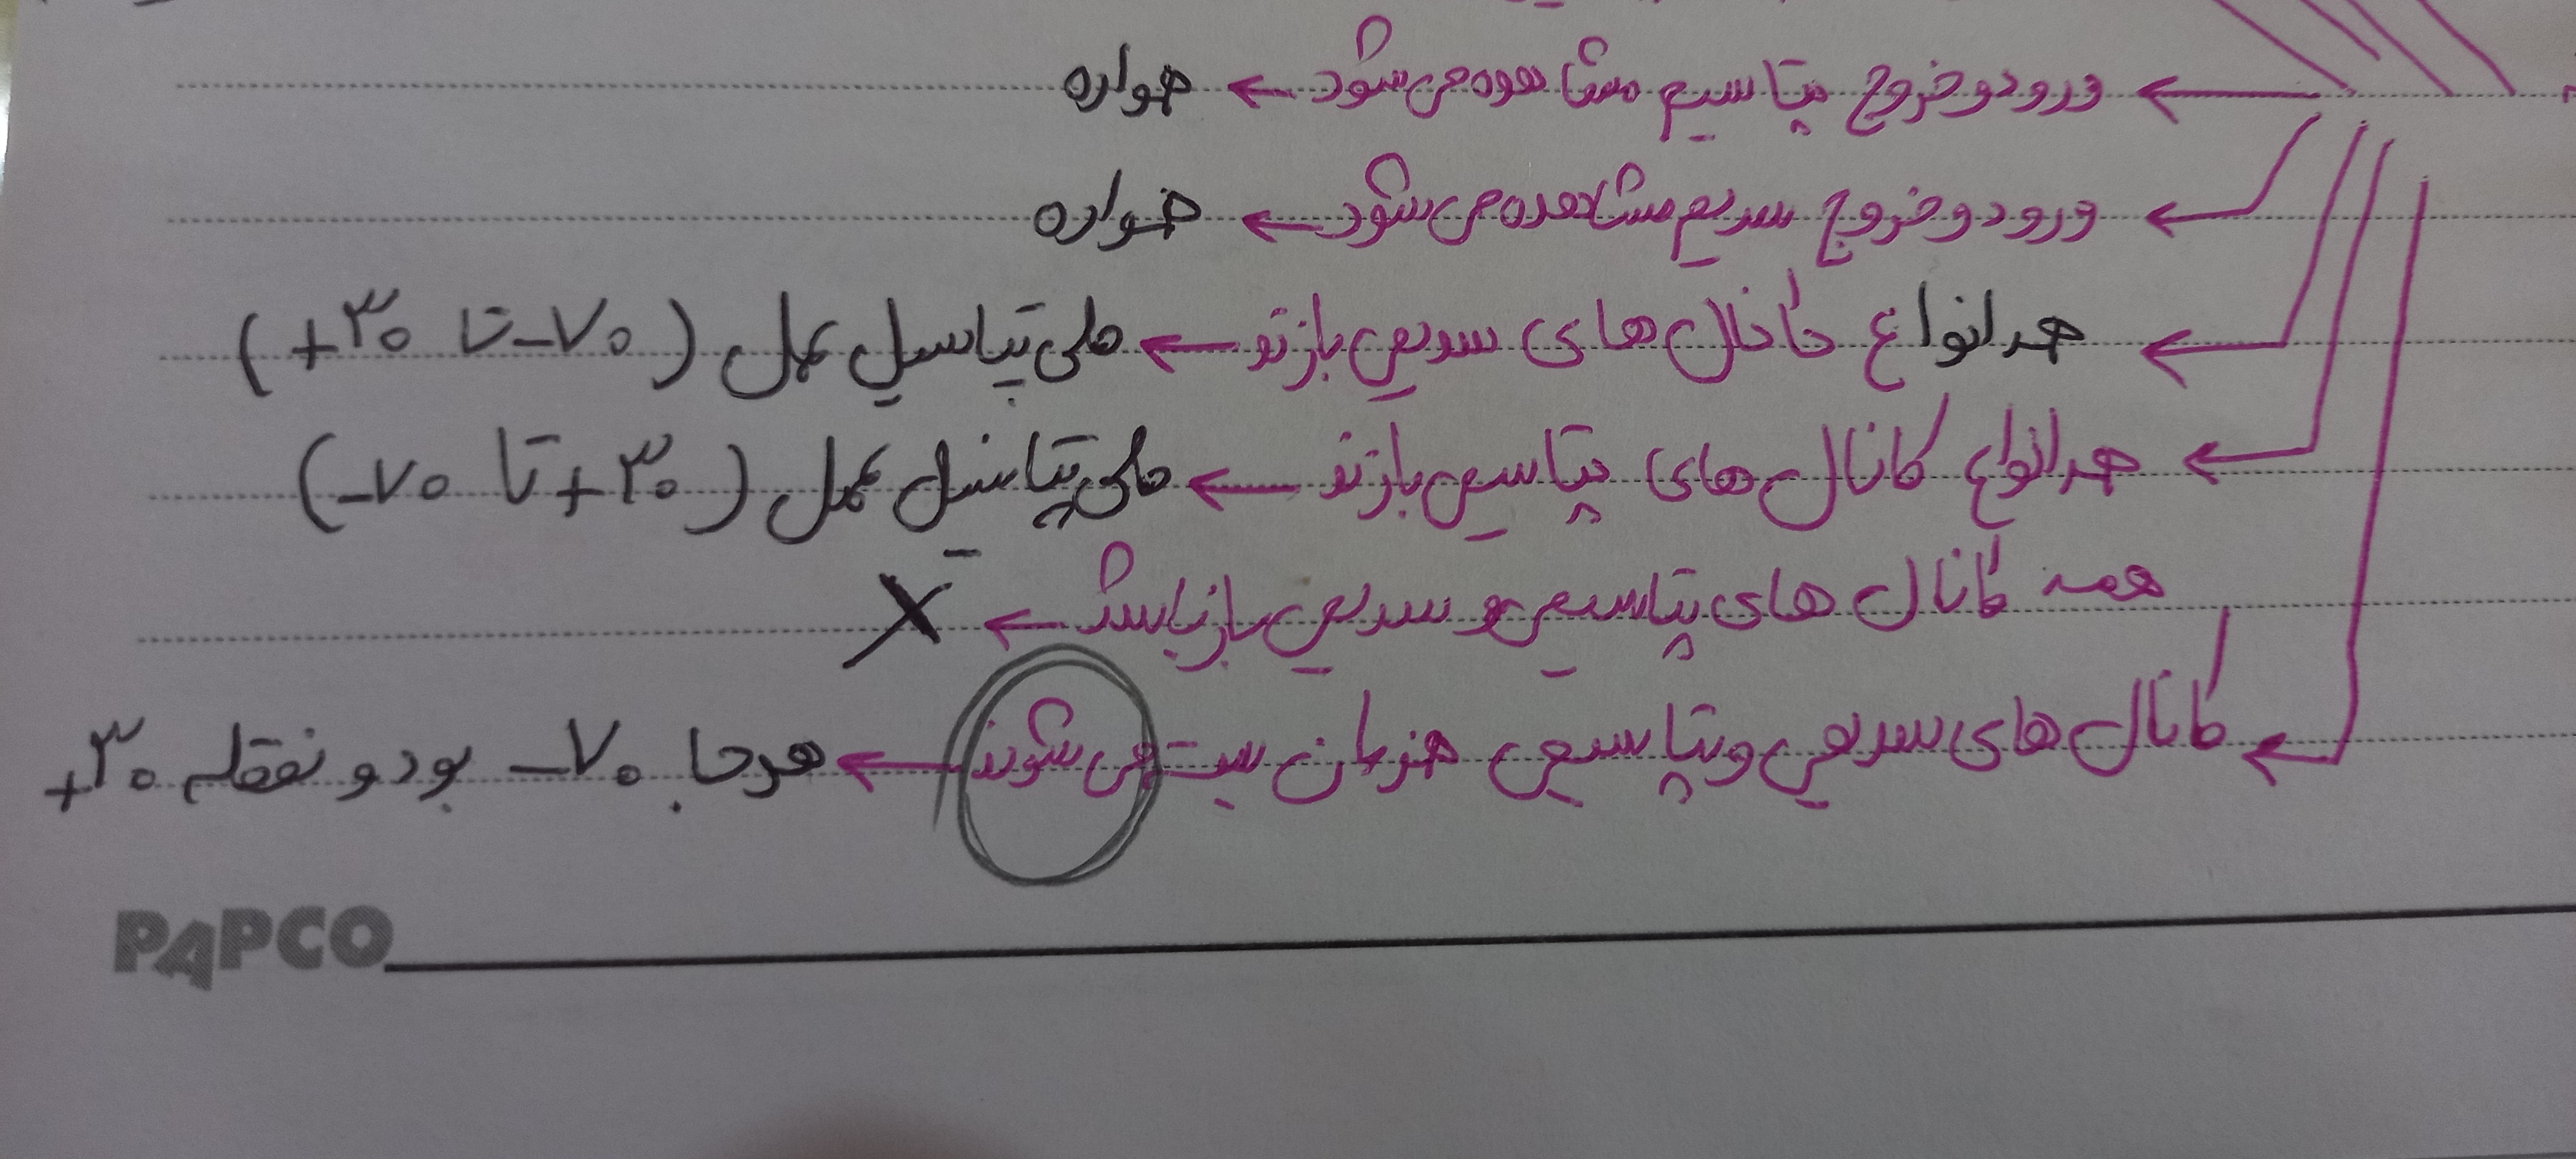 ورود و خروج پتاسیم مشاهده می‌شود ← همواره
ورود و خروج سدیم مشاهده می‌شود ← همواره
هر انواع کانال های سدیمی بازند ← طی پتانسیل عمل (۷۰- تا ۳۰+)
هر انواع کانال های پتاسیمی بازند ← طی پتانسیل عمل (۳۰+ تا ۷۰-)
همه کانال های پتاسیمی و سدیمی باز باشد ← X
کانال های سدیمی و پتاسیمی همزمان بسته می‌شوند ← هرجا ۷۰- بود و نقطه ۳۰+
PAPCO